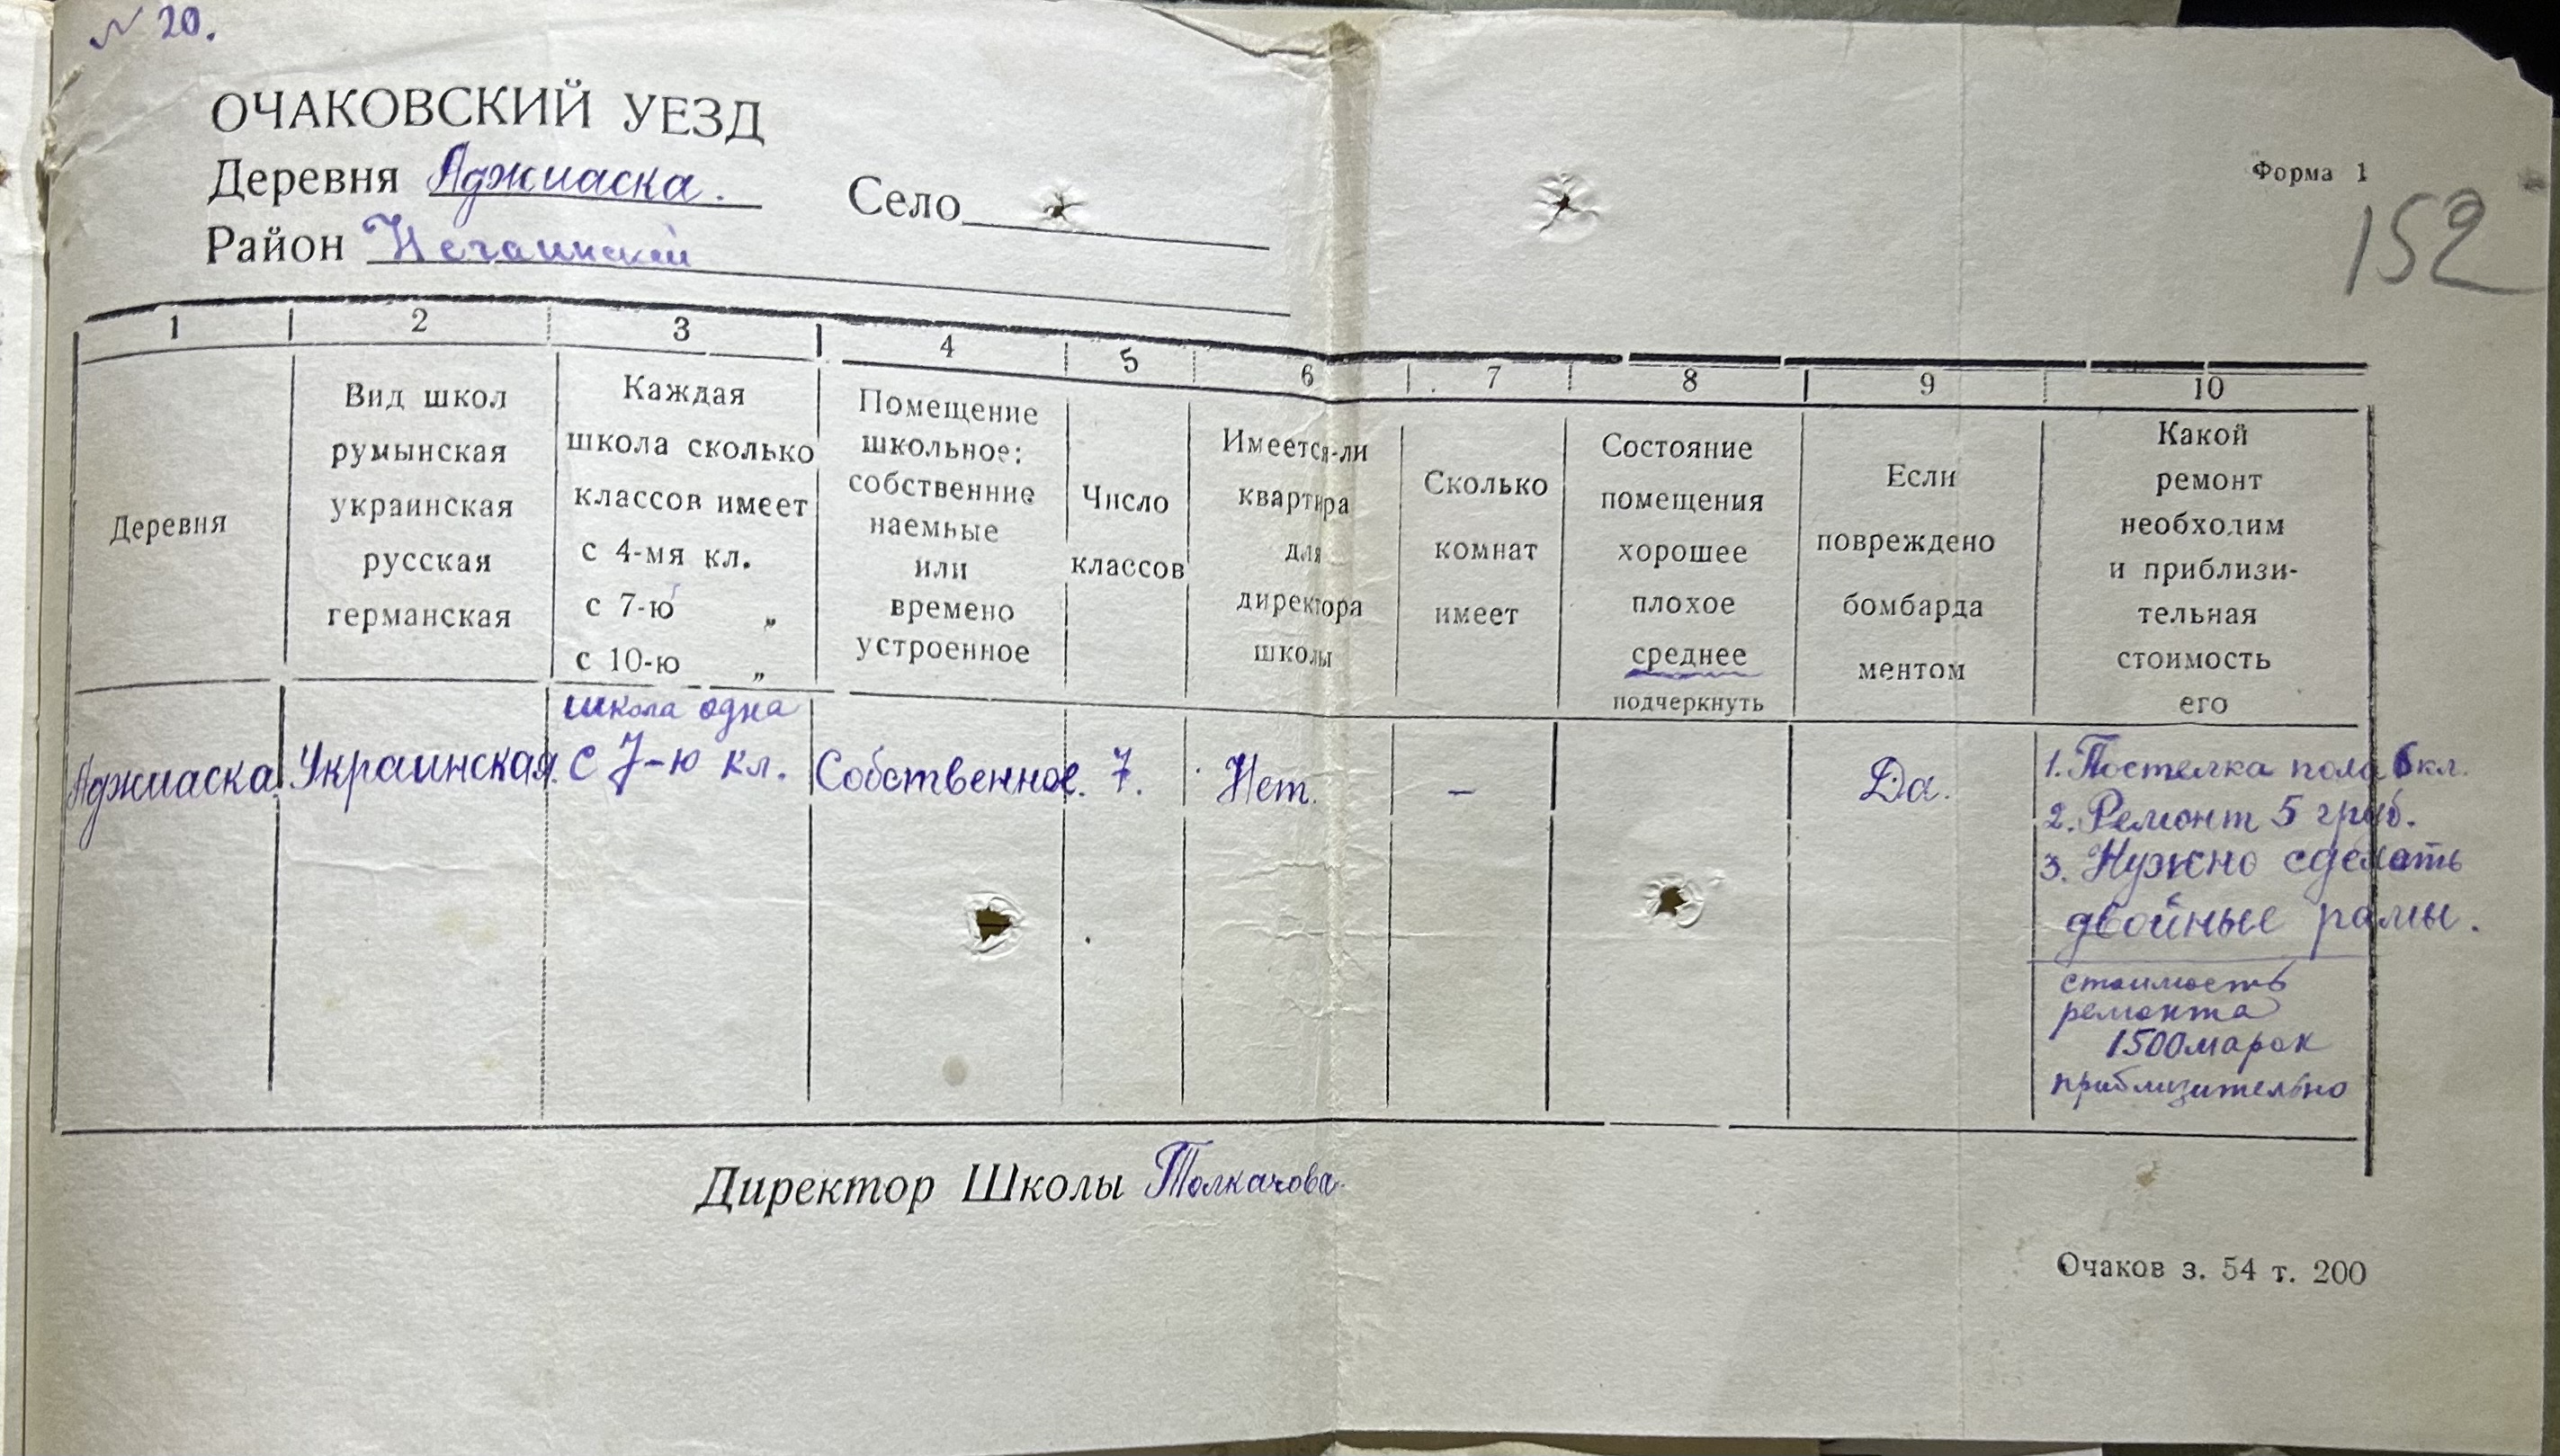 № 20.
ОЧАКОВСКИЙ УЕЗД
Деревня Аджиаска. Село
Район Нечаинский
Форма 1
152
1 2 3 4 5 6 7 8 9 10
Деревня
Вид школ
румынская
украинская
русская
германская
Каждая
школа сколько
классов имеет
с 4-мя кл.
с 7-ю „
с 10-ю „
Помещение
школьное:
собственние
наемные
или
времено
устроенное
Число
классов
Имеется-ли
квартира
для
директора
школы
Сколько
комнат
имеет
Состояние
помещения
хорошее
плохое
среднее
подчеркнуть
Если
повреждено
бомбарда
ментом
Какой
ремонт
необходим
и приблизи-
тельная
стоимость
его
Аджиаска
Украинская.
школа одна
с 7-ю кл.
Собственное.
7.
Нет.
–
Да.
1. Постелка пола 6 кл.
2. Ремонт 5 груб.
3. Нужно сделать
двойные рамы.
стоимость
ремонта
1500 марок
приблизительно
Директор Школы Толкачова
Очаков з. 54 т. 200